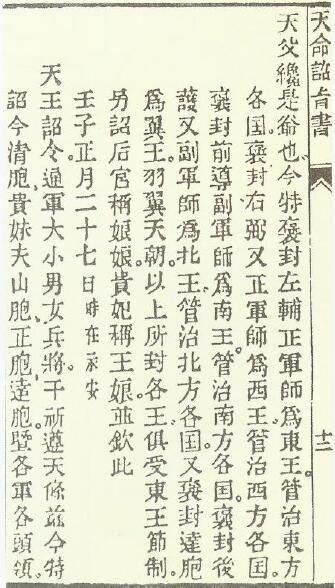 天命詔旨書
十二
天父纔是爺也。今特褒封左輔正軍師爲東王。管治東方
各国。褒封右弼又正軍師爲西王。管治西方各国。
褒封前導副軍師爲南王。管治南方各国。褒封後
護又副軍師爲北王。管治北方各国。又褒封達胞
爲翼王。羽翼天朝。以上所封各王俱受東王節制。
另詔后宮稱娘娘。貴妃稱王娘。並欽此
壬子正月二十七日時在永安
天王詔令。通軍大小男女兵將。千祈遵天條。茲今特
詔令清胞、貴妹夫山胞、正胞、達胞。曁各軍各頭領